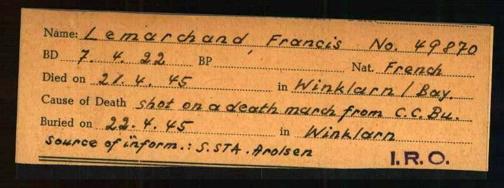 Name: Lemarchand, Francis No. 49870
BD 7. 4. 22 BP Nat. French
Died on 21. 4. 45 in Winklarn / Bay.
Cause of Death shot on a death march from C.C. Bu.
Buried on 22. 4. 45 in Winklarn
Source of inform.: S.STA. Arolsen
I.R.O.